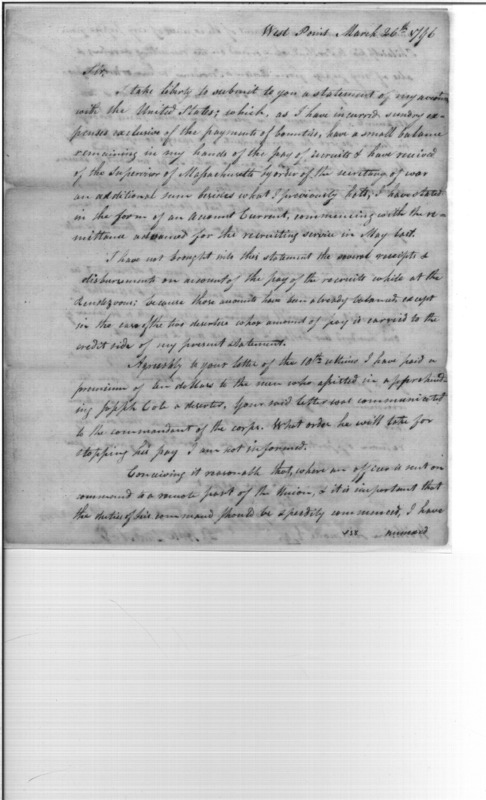 West Point March 26th 1796
Sir,
I take liberty to submit to you a statement of my account
with the United States; which, as I have incurred sundry ex-
penses exclusive of the payments of bounties, have a small balance
remaining in my hands of the pay of recruits & have received
of the Supervisor of Massachusetts by order of the secretary of war
an additional sum besides what I previously had, I have stated
in the form of an Account Current, commencing with the re-
mittance advanced for the recruiting service in May last.
I have not brought into this statement the several receipts &
disbursements on account of the pay of the recruits while at the
Rendezvous; because those amounts have been already balanced, except
in the case of the two deserters whose amount of pay is carried to the
credit side of my present statement.
Agreeably to your letter of the 10th ultimo I have paid a
premium of ten dollars to the men who assisted in apprehend-
ing Joseph Cole a deserter. Your said letter was communicated
to the commandant of the corps. What order he will take for
stopping his pay I am not informed.
Conceiving it reasonable that, where an officer is sent on
command to a remote part of the Union, & it is important that
the duties of his command should be speedily commenced, I have